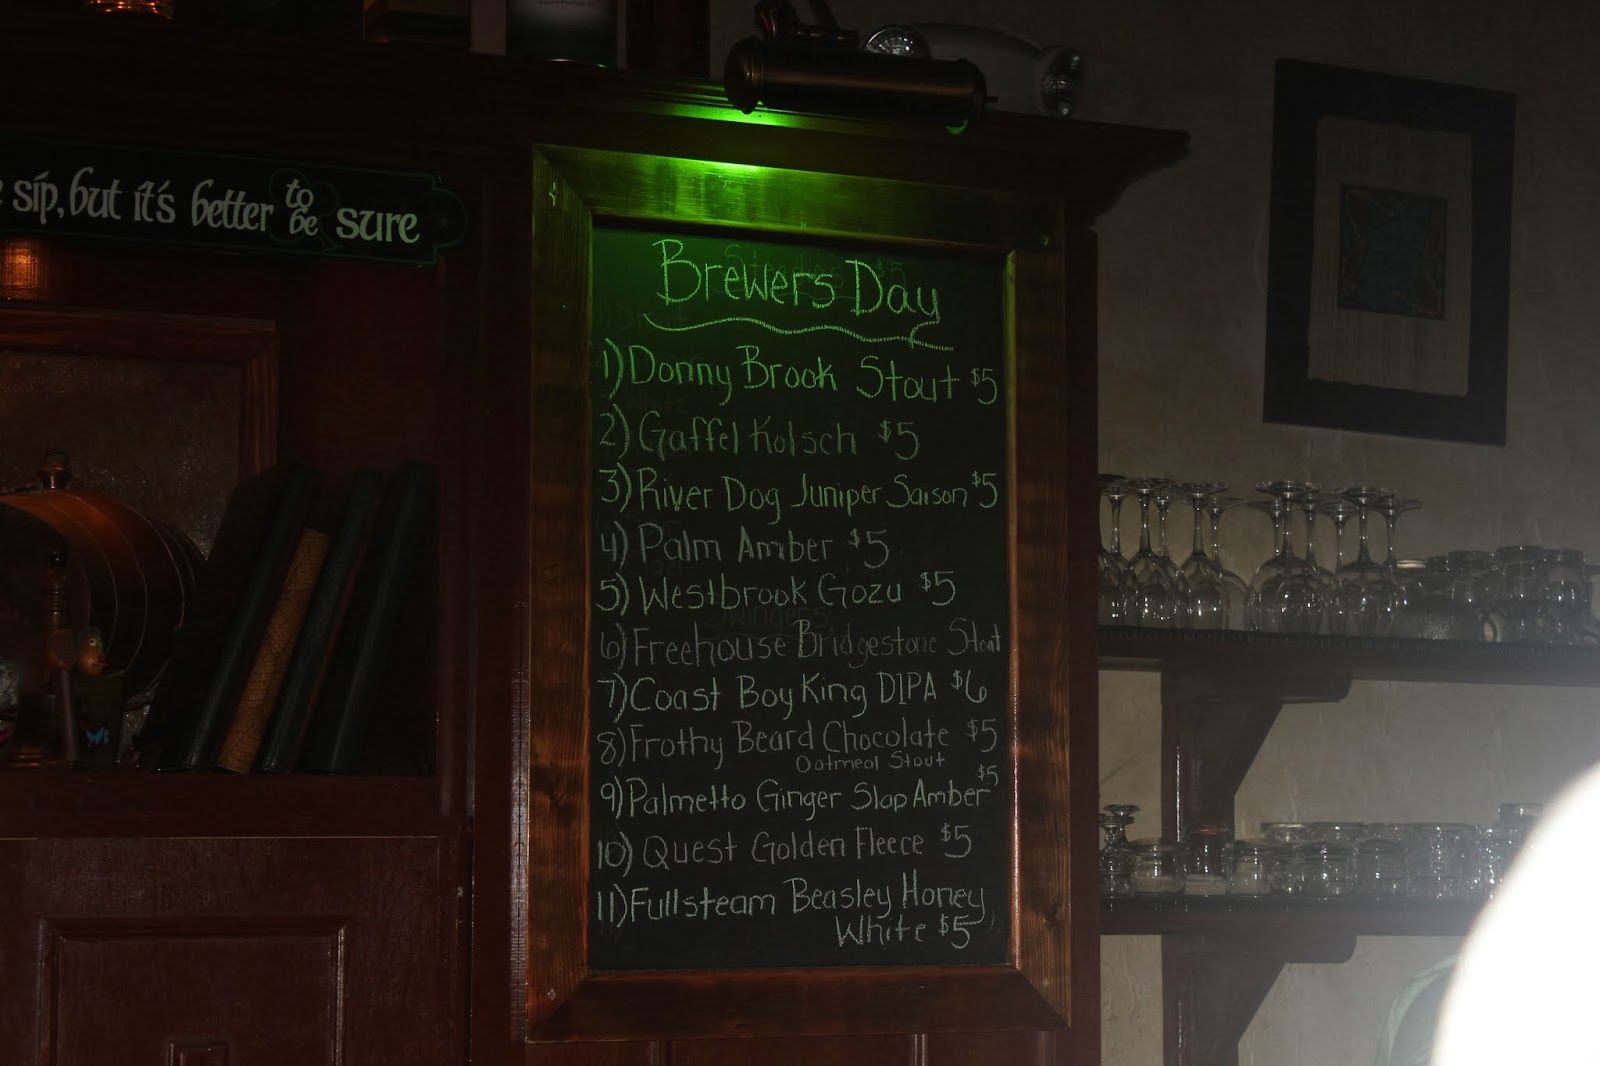 sip, but it's better to be sure
Brewers Day
1) Donny Brook Stout $5
2) Gaffel Kolsch $5
3) River Dog Juniper Saison $5
4) Palm Amber $5
5) Westbrook Gozu $5
6) Freehouse Bridgestone Stout
7) Coast Boy King DIPA $6
8) Frothy Beard Chocolate $5
Oatmeal Stout
9) Palmetto Ginger Slap Amber $5
10) Quest Golden Fleece $5
11) Fullsteam Beasley Honey
White $5